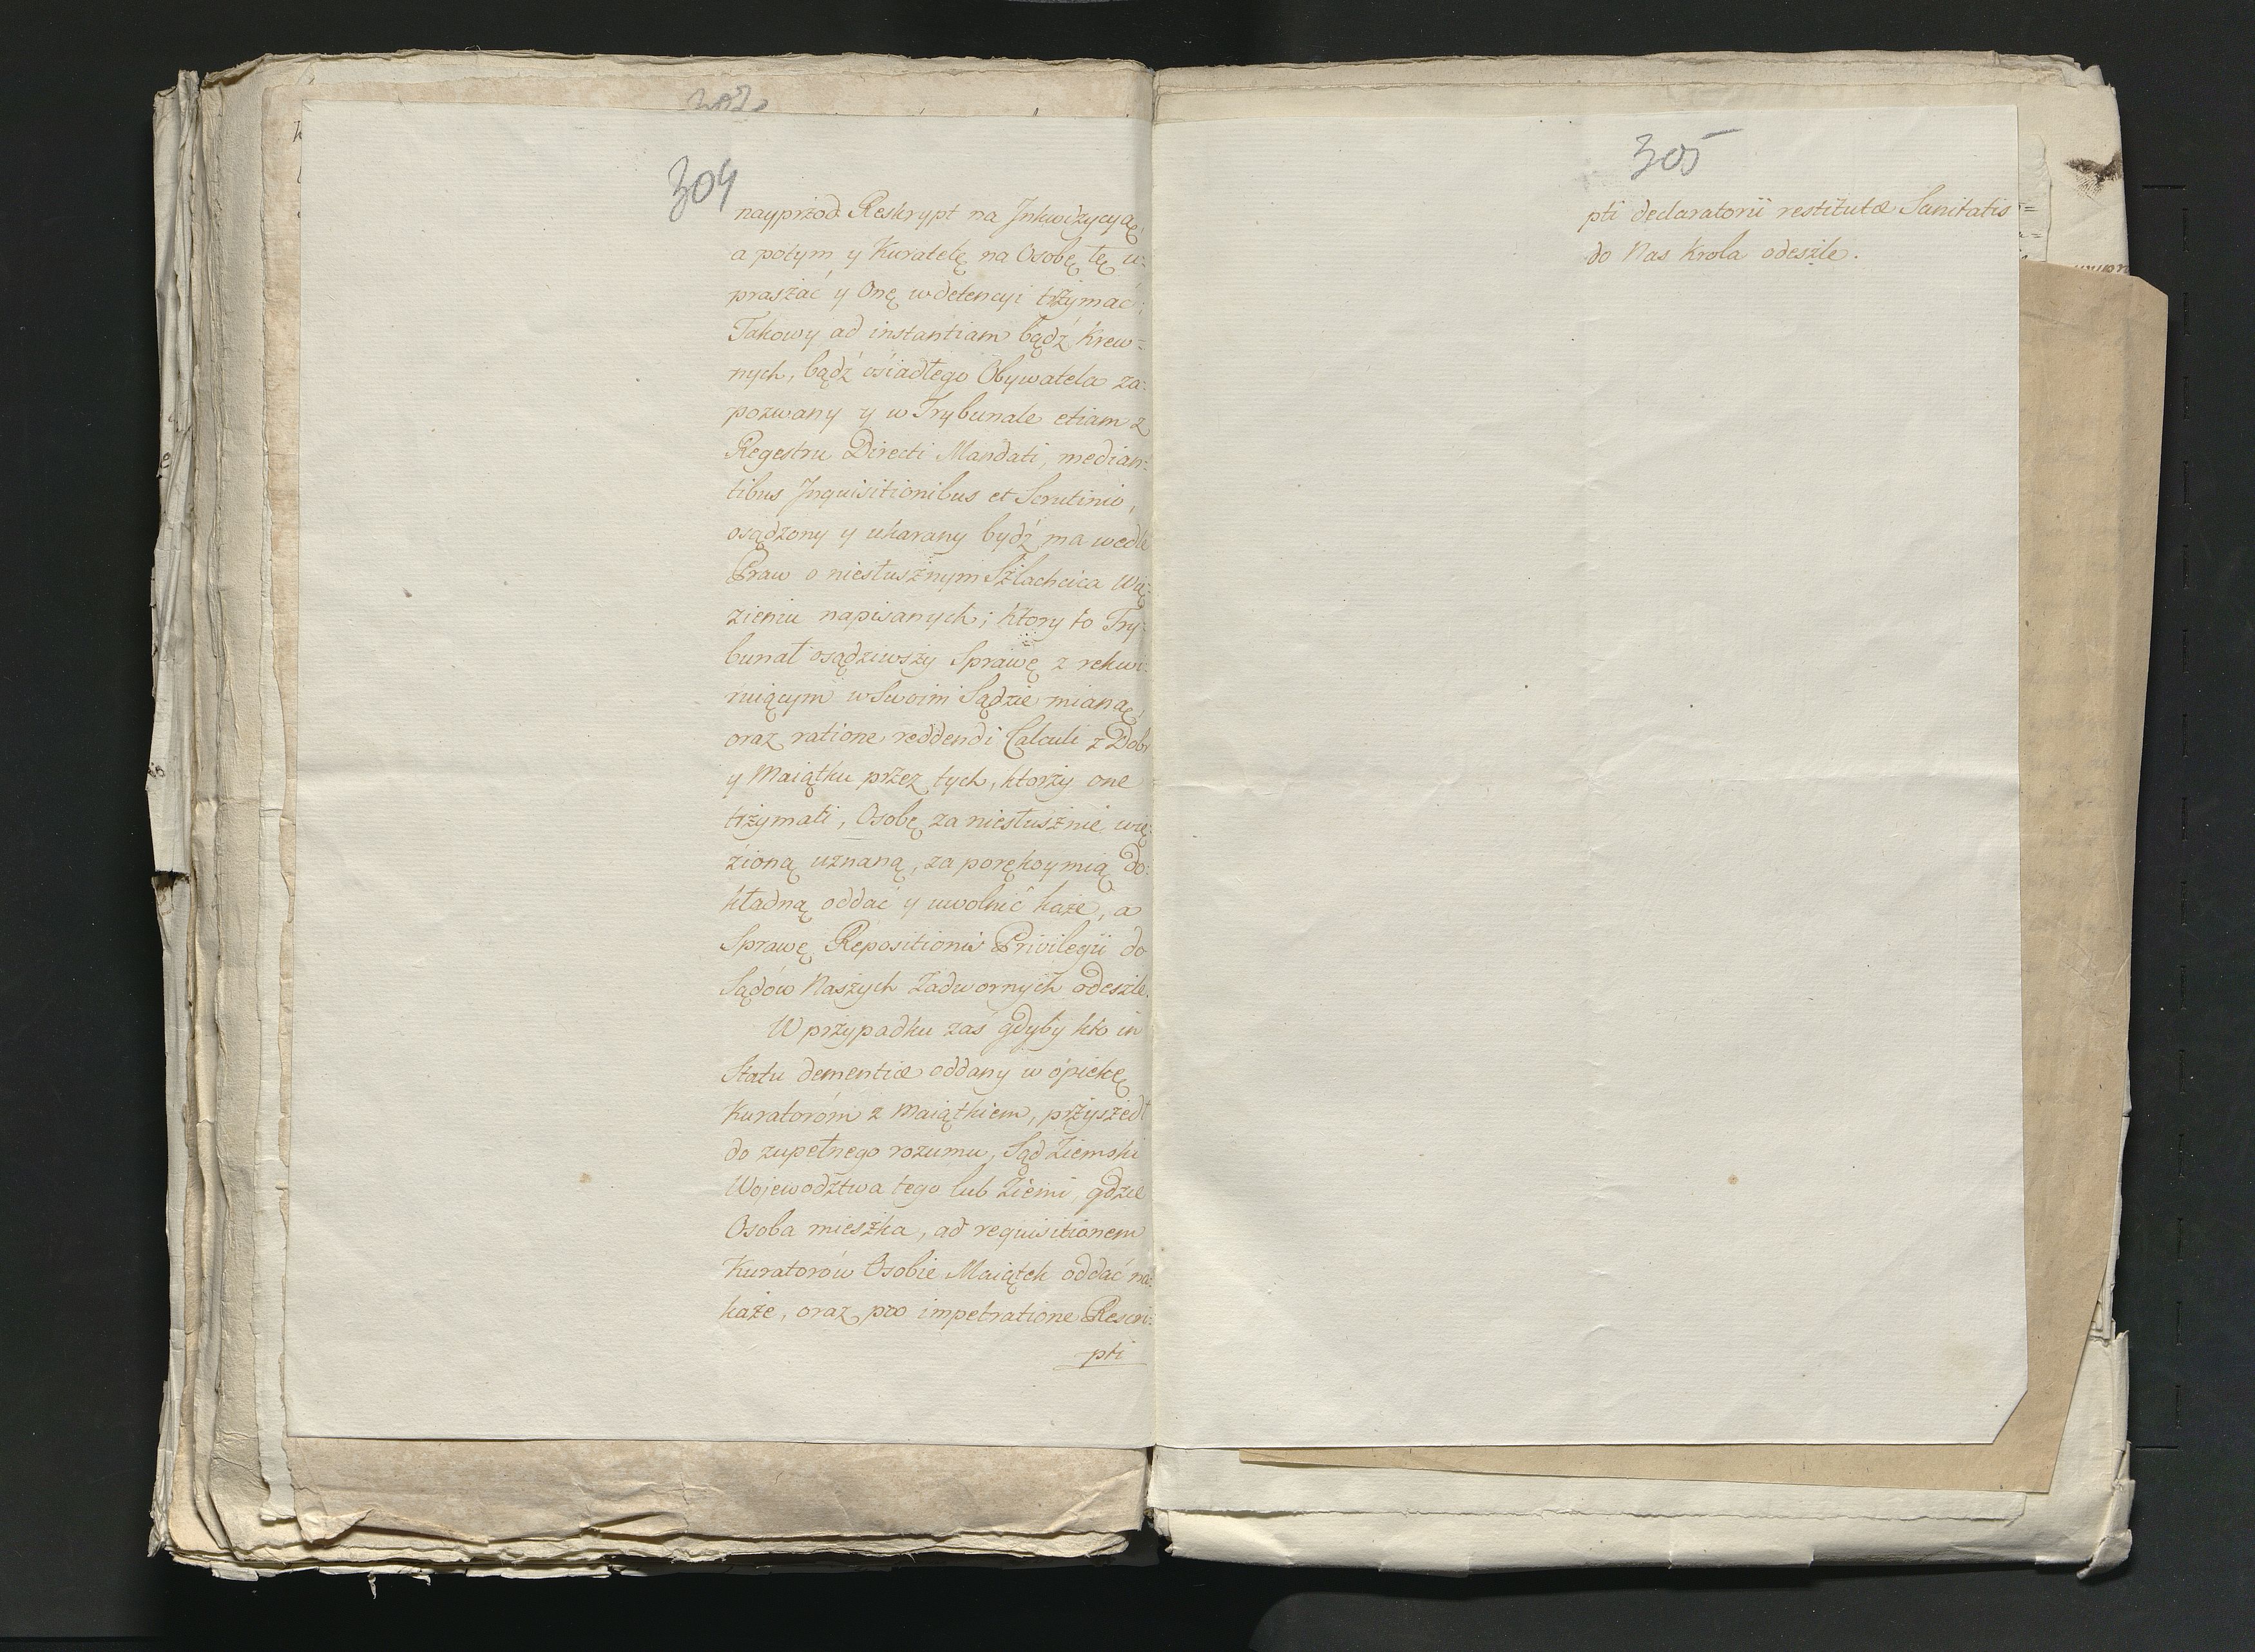 304
nayprzod Reskrypt na Jnkwizycyą,
a potym y Kuratelę na Osobę tę u-
praszać y Onę w detencyi trzymać;
Takowy ad instantiam bądź Krew=
nych, bądź osiadłego Obywatela za-
pozwany y w Trybunale etiam z
Regestru Directi Mandati, median-
tibus Jnquisitionibus et Scrutinio,
osądzony y ukarany bydź ma wedle
Praw o niesłusznym Szlachcica Wię-
zieniu napisanych; ktory to Try-
bunał osądziwszy Sprawę z rekwi-
ruiącym w Swoim Sądzie mianą,
oraz ratione reddendi Calculi z Dobr
y Maiątku przez tych, ktorzy one
trzymali, Osobę za niesłusznie wię-
zioną uznaną, za porękoymią do-
kładną oddać y uwolnić każe, a
Sprawę Repositionis Privilegii do
Sądów Naszych Zadwornych odeszle.
W przypadku zaś gdyby kto in
Statu dementiæ oddany w opiekę
Kuratoróm z Maiątkiem, przyszedł
do zupełnego rozumu, Sąd Ziemski
Wojewodztwa tego lub Ziemi, gdzie
Osoba mieszka, ad requisitionem
Kuratorów Osobie Maiątek oddać na-
każe, oraz pro impetratione Rescri-
pti
305
pti declaratorii restitutæ Sanitatis
do Nas Krola odeszle.